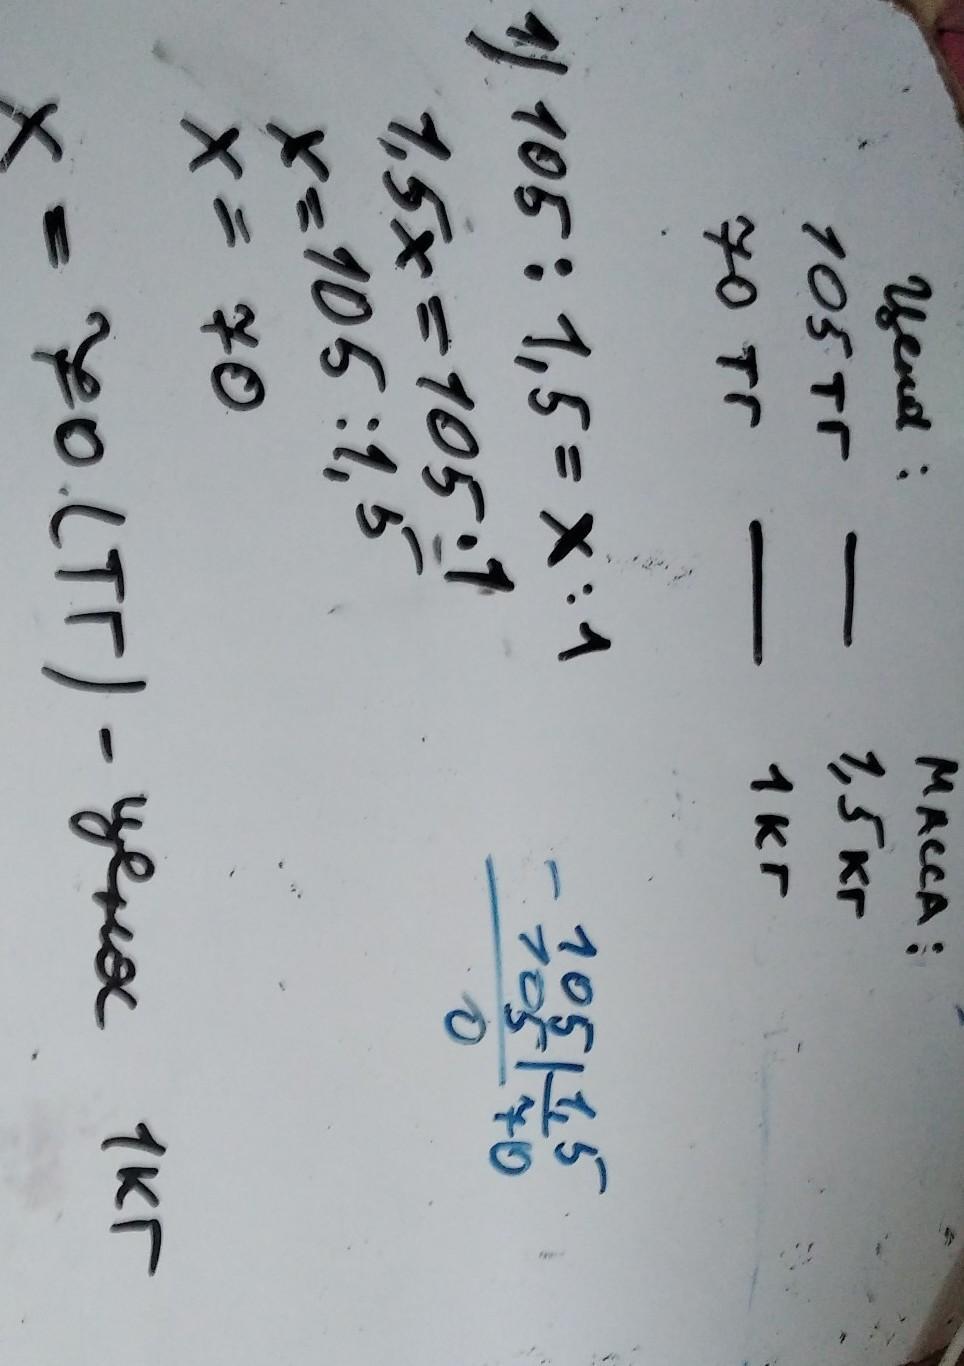 Цена: Масса:
105 тг — 1,5 кг
70 тг — 1 кг
1) 105 : 1,5 = x : 1
1,5x = 105 · 1
x = 105 : 1,5
x = 70
x = 70 (тг) - цена 1 кг
- 105 | 1,5
105 | 70
0